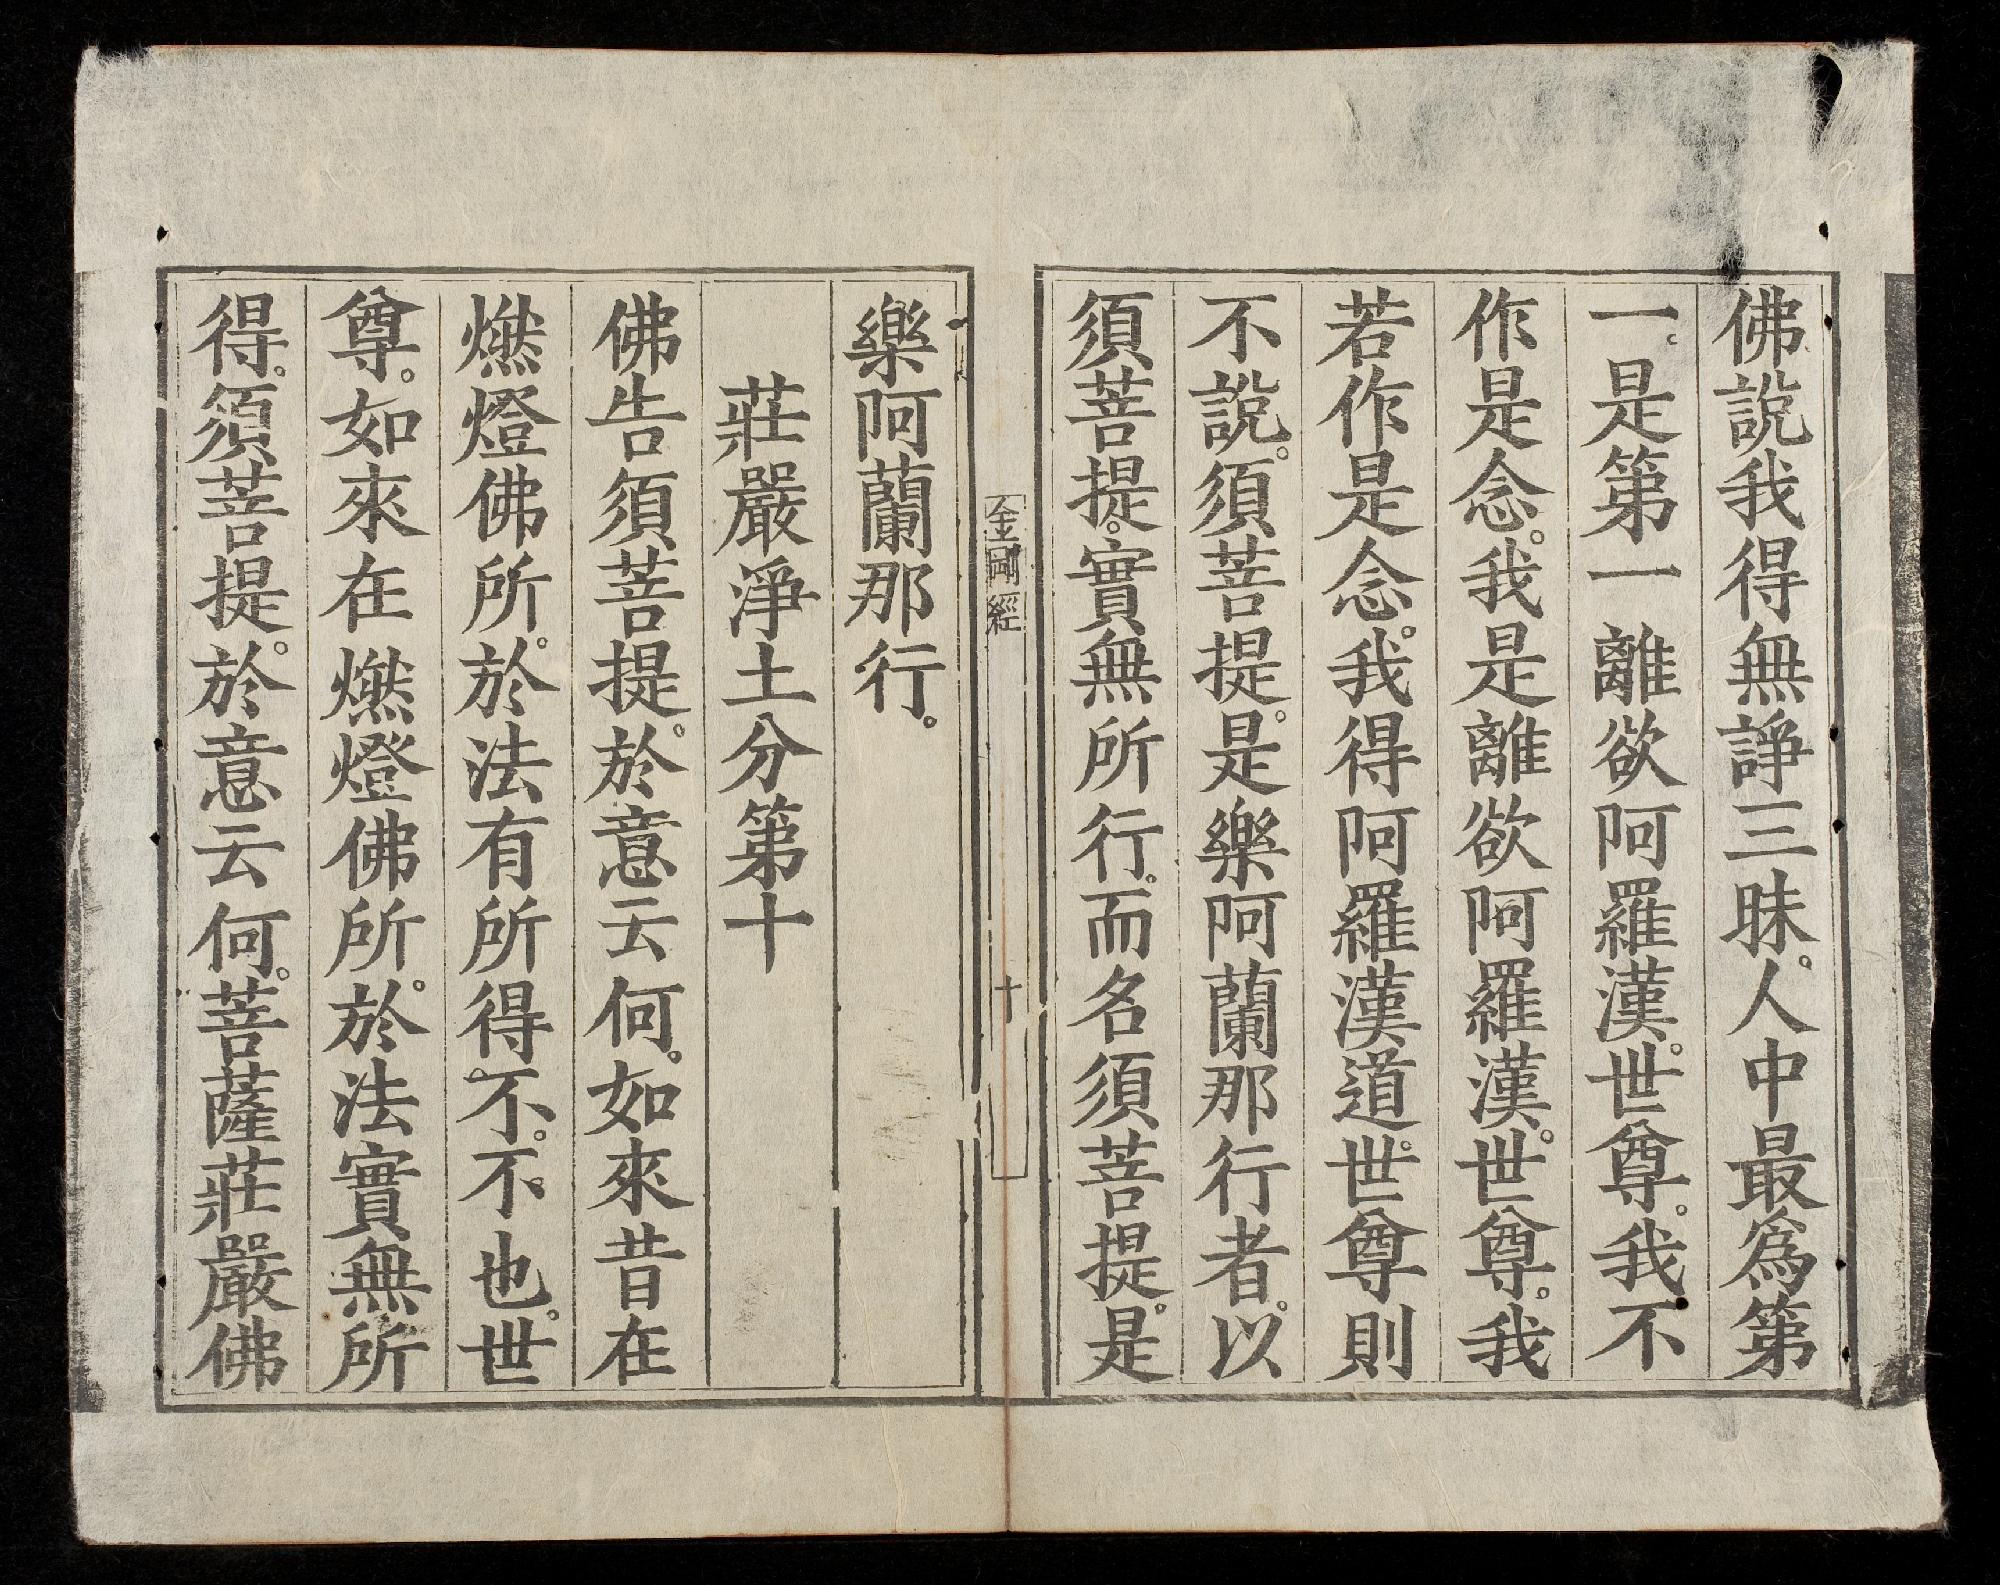 佛說我得無諍三昧。人中最爲第
一。是第一離欲阿羅漢。世尊。我不
作是念。我是離欲阿羅漢。世尊。我
若作是念。我得阿羅漢道。世尊則
不說。須菩提。是樂阿蘭那行者。以
須菩提。實無所行。而名須菩提。是
金剛經
十
樂阿蘭那行。
莊嚴淨土分第十
佛告須菩提。於意云何。如來昔在
燃燈佛所。於法有所得。不。不。不也。世
尊。如來在燃燈佛所。於法實無所
得。須菩提。於意云何。菩薩莊嚴佛